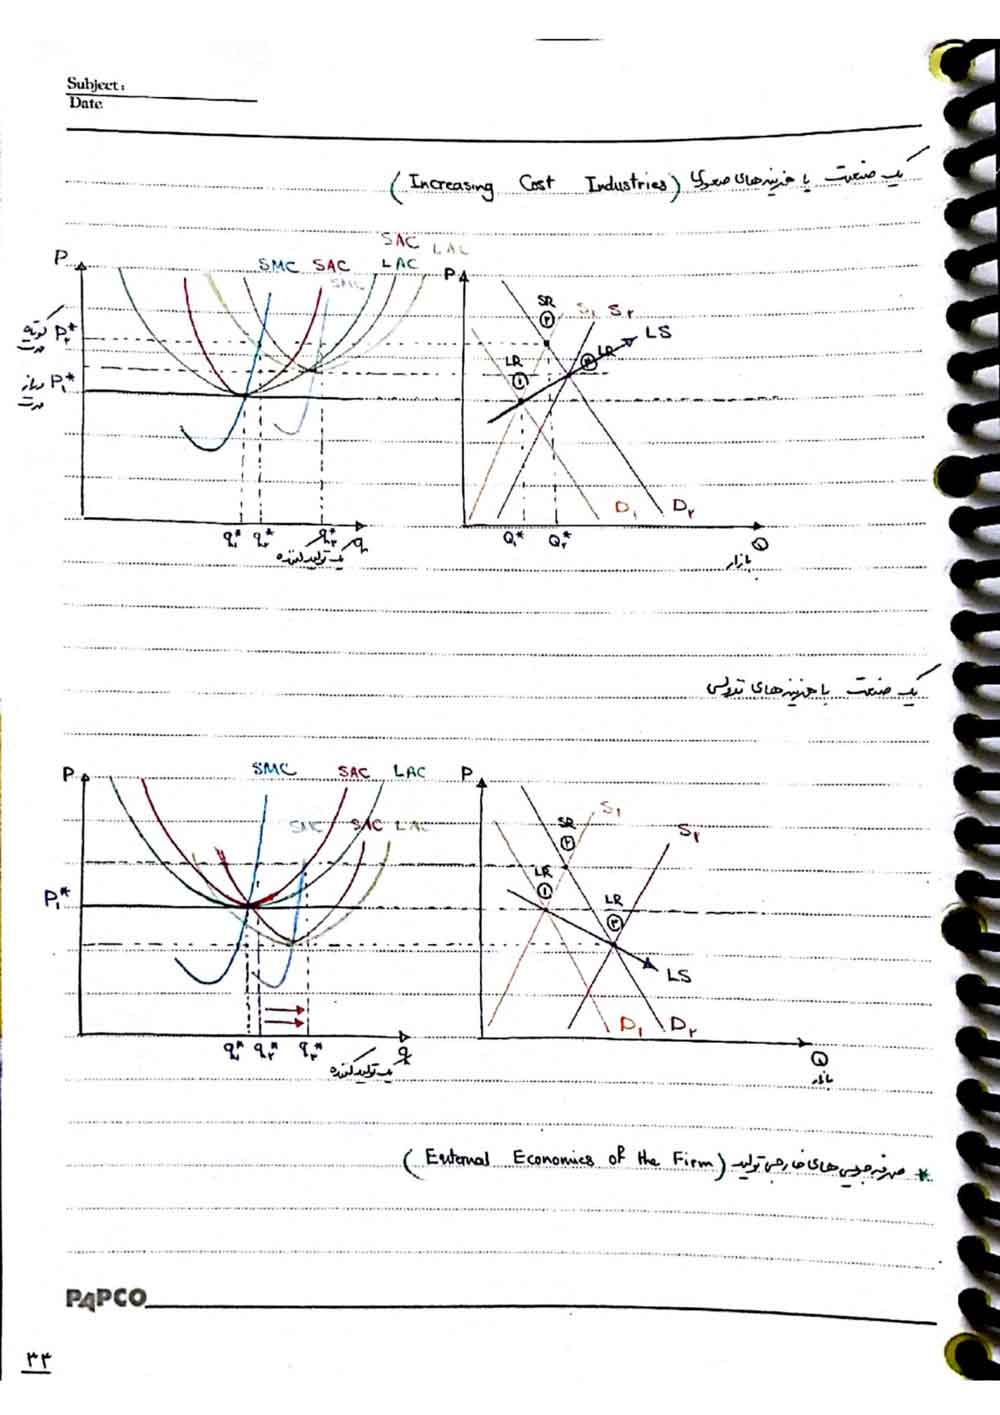 Subject:
Date
یک صنعت با هزینه‌های صعودی (Increasing Cost Industries)
SAC LAC
P SMC SAC LAC
SMC
P₂* کوتاه مدت
P₁* دراز مدت
q₁* q₂* q₃* q
یک تولید کننده
P
SR ۲ S₁ S₂
LR ۱ ۳ LR LS
D₁ D₂
Q₁* Q₂* Q
بازار
یک صنعت با هزینه‌های نزولی
P SMC SAC LAC
SMC SAC LAC
P₁*
q₁* q₂* q₃* q
یک تولید کننده
P
S₁
SR ۲ S₂
LR ۱
LR ۳
LS
D₁ D₂
Q
بازار
* صرفه جویی های خارجی تولید (External Economics of the Firm)
PAPCO
۳۳